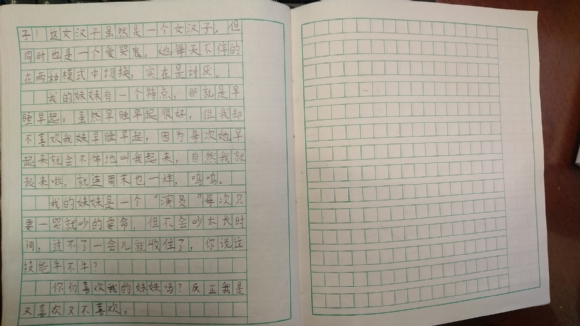 子！这女汉子虽然是一个女汉子，但
同时也是一个爱哭鬼，她每天不停的
在两种模式中切换，实在是讨厌。
我的妹妹有一个特点，那就是早
睡早起，虽然早睡早起很好，但我却
不喜欢我妹早睡早起，因为每次她早
起来就会不停地叫我起来，自然我就
起来啦，就连周末也一样，呜呜。
我的妹妹是一个“演员”每次只
要一哭就吵的要命，但不会吵太长时
间，过不了一会儿就收住了，你说这
技能牛不牛？
你们喜欢我的妹妹吗？反正我是
又喜欢又不喜欢。